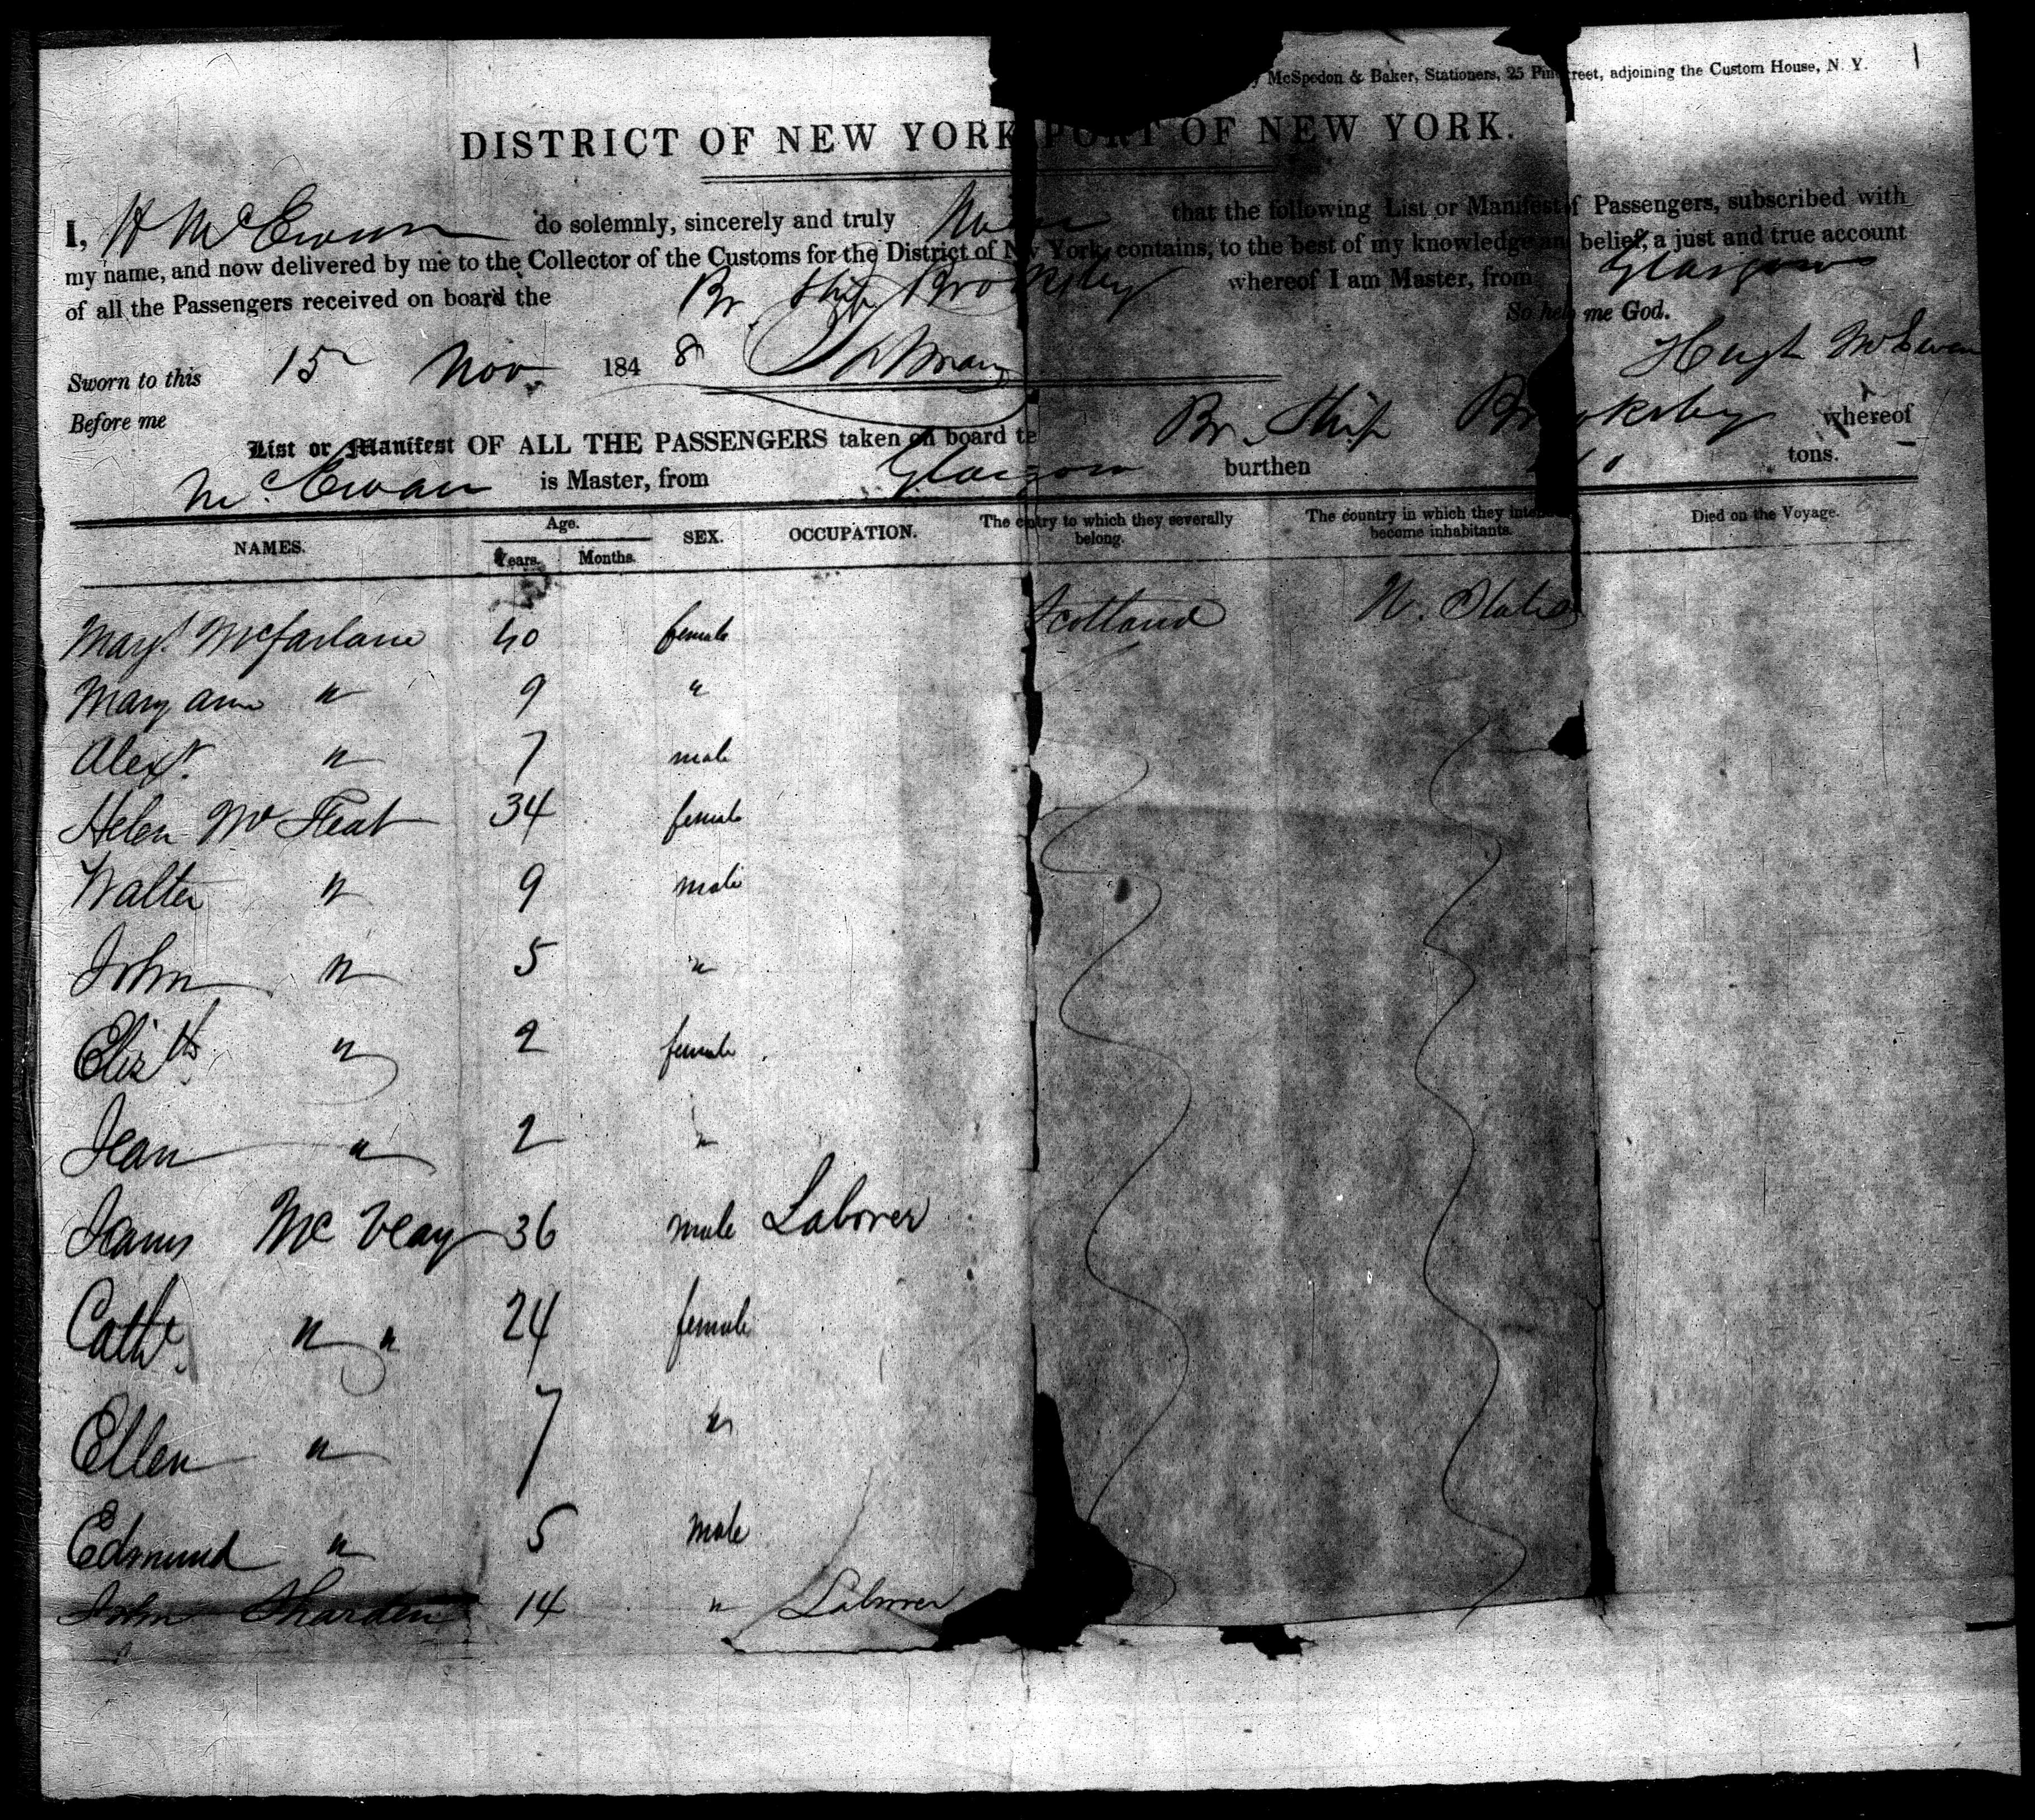 McSpedon & Baker, Stationers, 25 Pine Street, adjoining the Custom House, N. Y.
DISTRICT OF NEW YORK PORT OF NEW YORK.
I, H McEwan do solemnly, sincerely and truly that the following List or Manifest of Passengers, subscribed with
my name, and now delivered by me to the Collector of the Customs for the District of New York, contains, to the best of my knowledge and belief, a just and true account
of all the Passengers received on board the Br. Ship Brooksby whereof I am Master, from Glasgow
So help me God.
Sworn to this 15 Nov 1848 Hugh McEwan
Before me
List or Manifest OF ALL THE PASSENGERS taken on board the Br. Ship Brooksby whereof
McEwan is Master, from Glasgow burthen tons.
NAMES. Age. Years. Months. SEX. OCCUPATION. The country to which they severally belong. The country in which they intend to become inhabitants. Died on the Voyage.
Margt. McFarlane 40 female Scotland U. States
Mary Ann " 9 "
Alexr. " 7 male
Helen McFeat 34 female
Walter " 9 male
John " 5 "
Elizth. " 2 female
Jean " 2 "
James McVeay 36 male Laborer
Cathe. " " 24 female
Ellen " 7 "
Edmund " 5 male
John 14 " Laborer